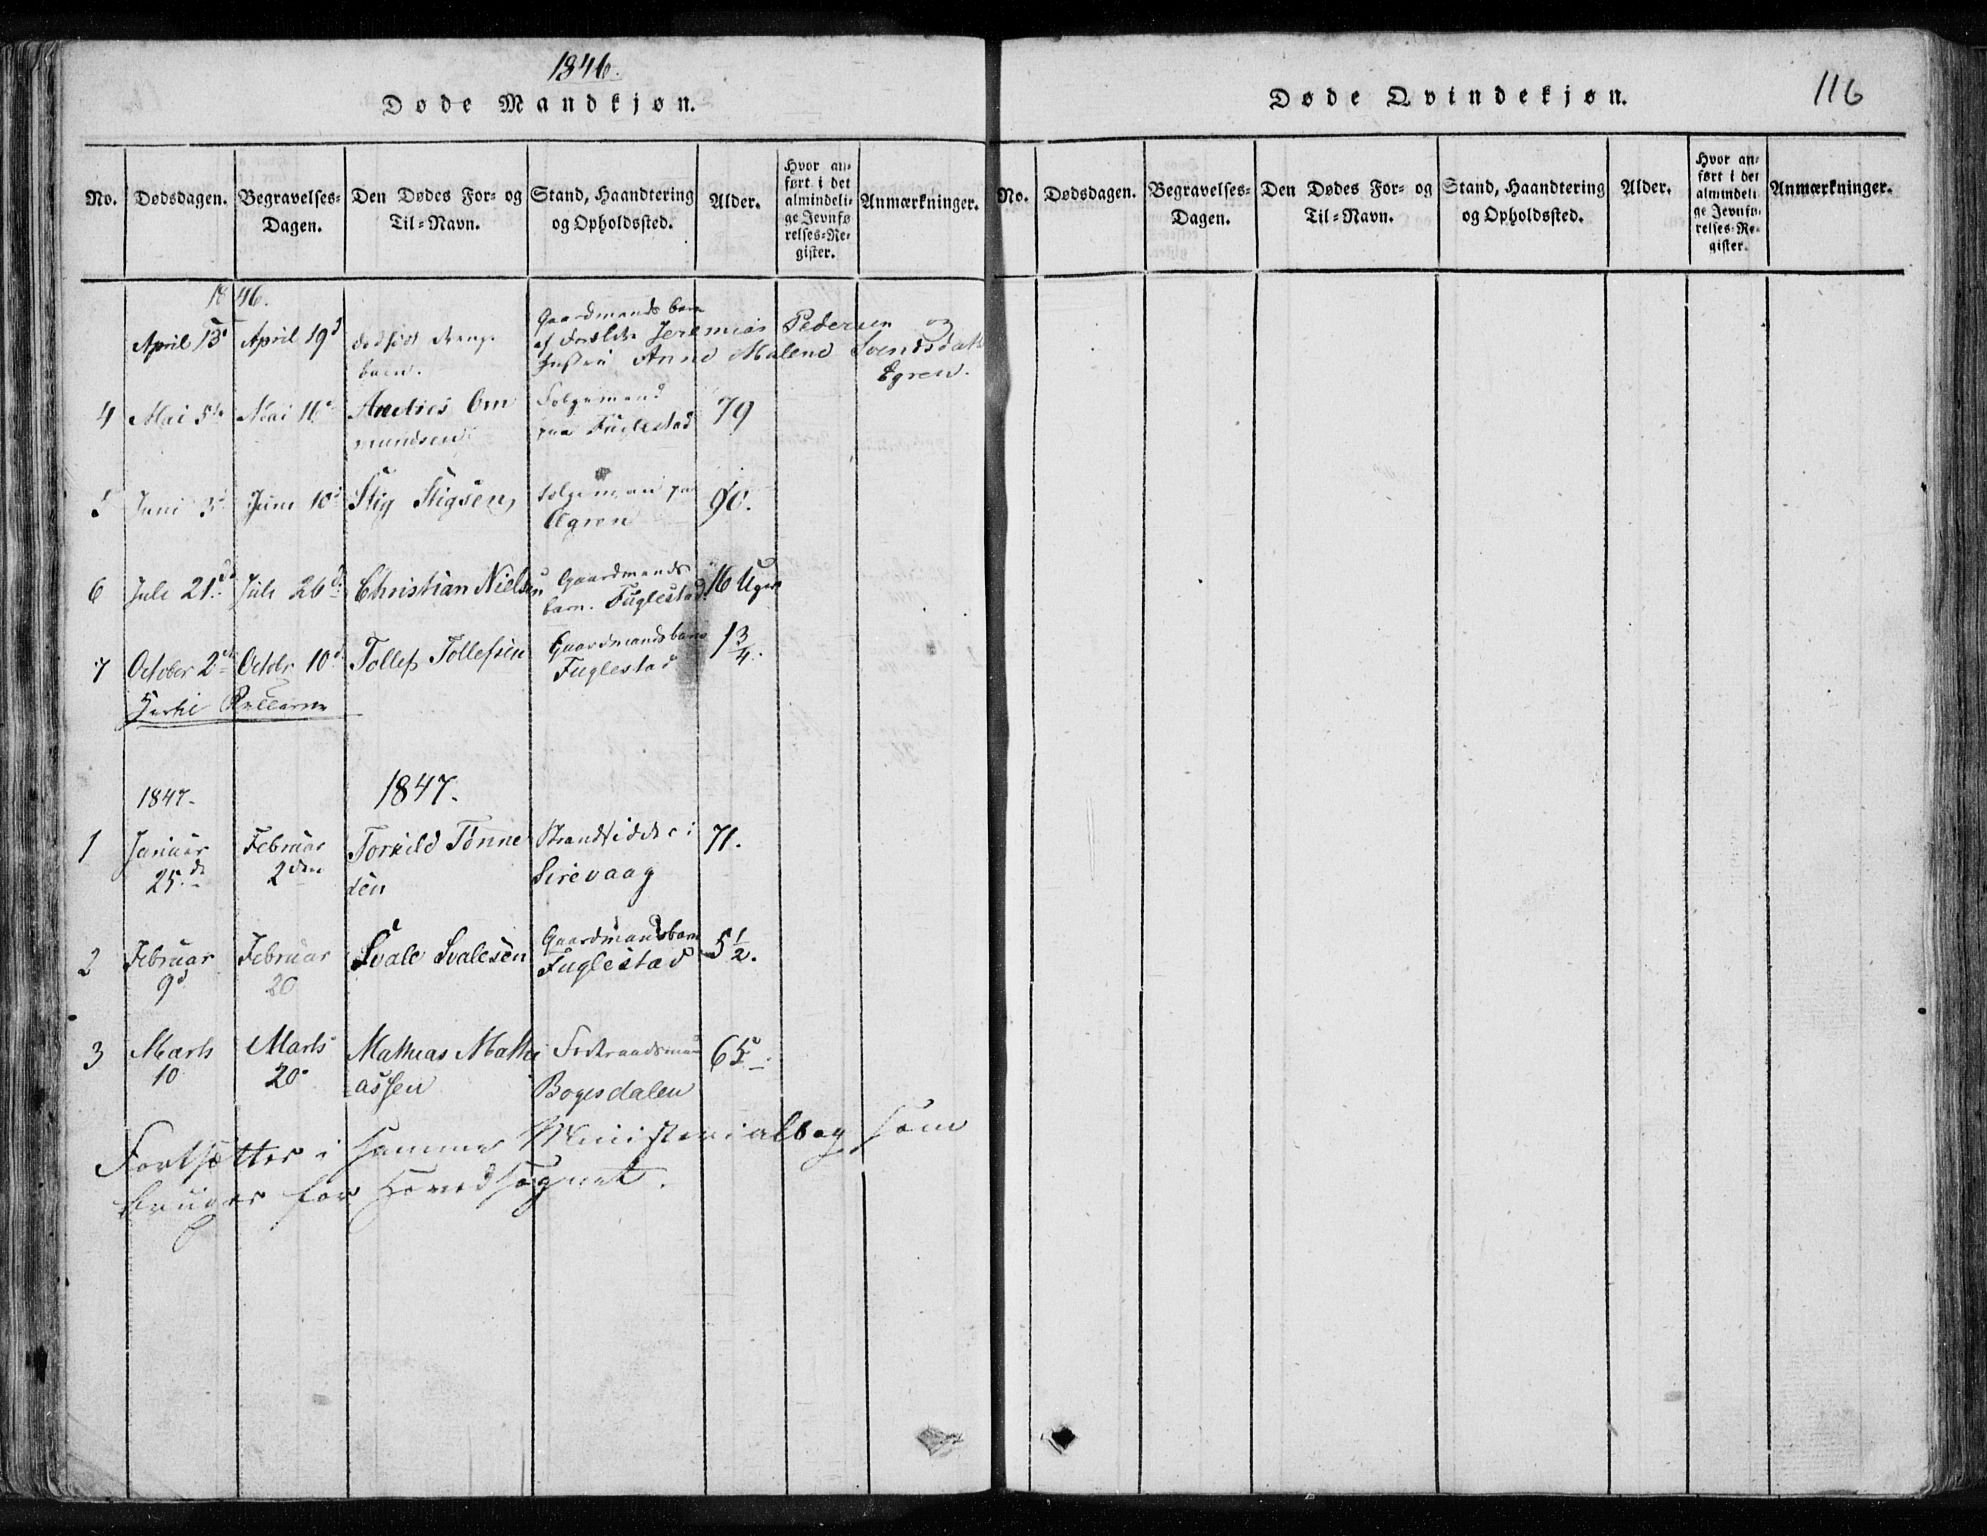 1846.
Døde Mandkjøn.
No. Dødsdagen. Begravelses-Dagen. Den Dødes For- og Til-Navn. Stand, Haandtering og Opholdssted. Alder. Hvor anført i det almindelige Jevnførelses-Register. Anmærkninger.
1846.
April 13d April 19d dødfødt drenge barn. Gaardmands barn af Forældre Jeremias Pedersen og Hustru Anne Malene Svendsdatt Egren.
4 Mai 5te Mai 16 Andreas Om mundsen Folgemand paa Fuglestad 79
5 Juni 3d Juni 10d Stig Stigsen Folgemand paa Ægren 90.
6 Juli 21de Juli 26d Christian Nielsen Gaardmands barn. Fuglestad 16 Uger
7 October 2den Octobr 10d Tollef Tollefsen Gaardmandsbarn Fuglestad 1 3/4.
Hertil
1847. 1847.
1 Januar 25.de Februar 2den Torkild Tønne sen Strandsidder i Sirevaag 71.
2 Februar 9d Februar 20 Svale Svalesen Gaardmandsbarn Fuglestad 5 1/2.
3 Marts 10 Marts 20 Mathias Mathi assen Bogesdalen 65
Fortsættes i samme Ministerialbog som
bruges for Hovedsognet.
Døde Qvindekjøn.
116
No. Dødsdagen. Begravelses-Dagen. Den Dødes For- og Til-Navn. Stand, Haandtering og Opholdssted. Alder. Hvor anført i det almindelige Jevnførelses-Register. Anmærkninger.